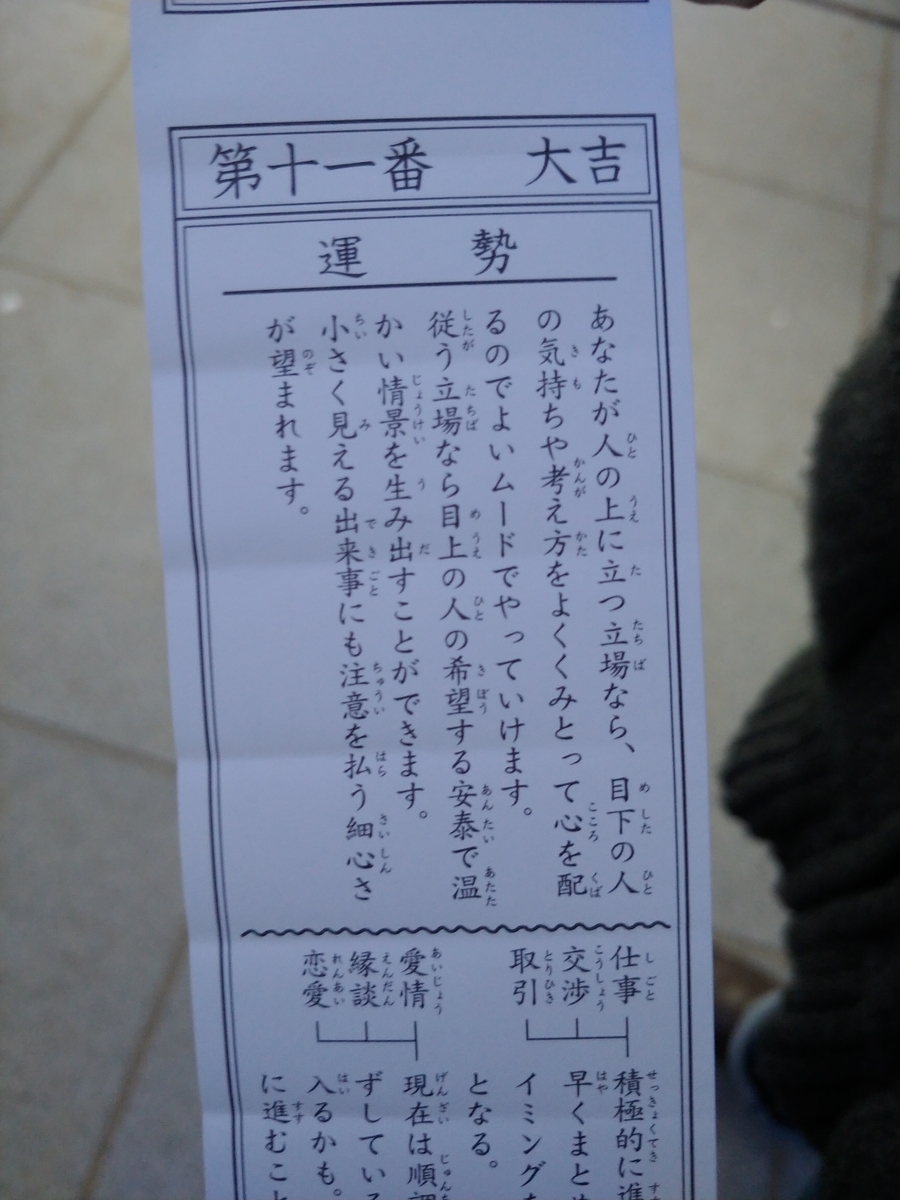 第十一番 大吉
運勢
あなたが人の上に立つ立場なら、目下の人
の気持ちや考え方をよくくみとって心を配
るのでよいムードでやっていけます。
従う立場なら目上の人の希望する安泰で温
かい情景を生み出すことができます。
小さく見える出来事にも注意を払う細心さ
が望まれます。
仕事
交渉
取引
積極的に進
早くまとめ
イミングを
となる。
愛情
縁談
恋愛
現在は順調
ずしている
入るかも。
に進むこと